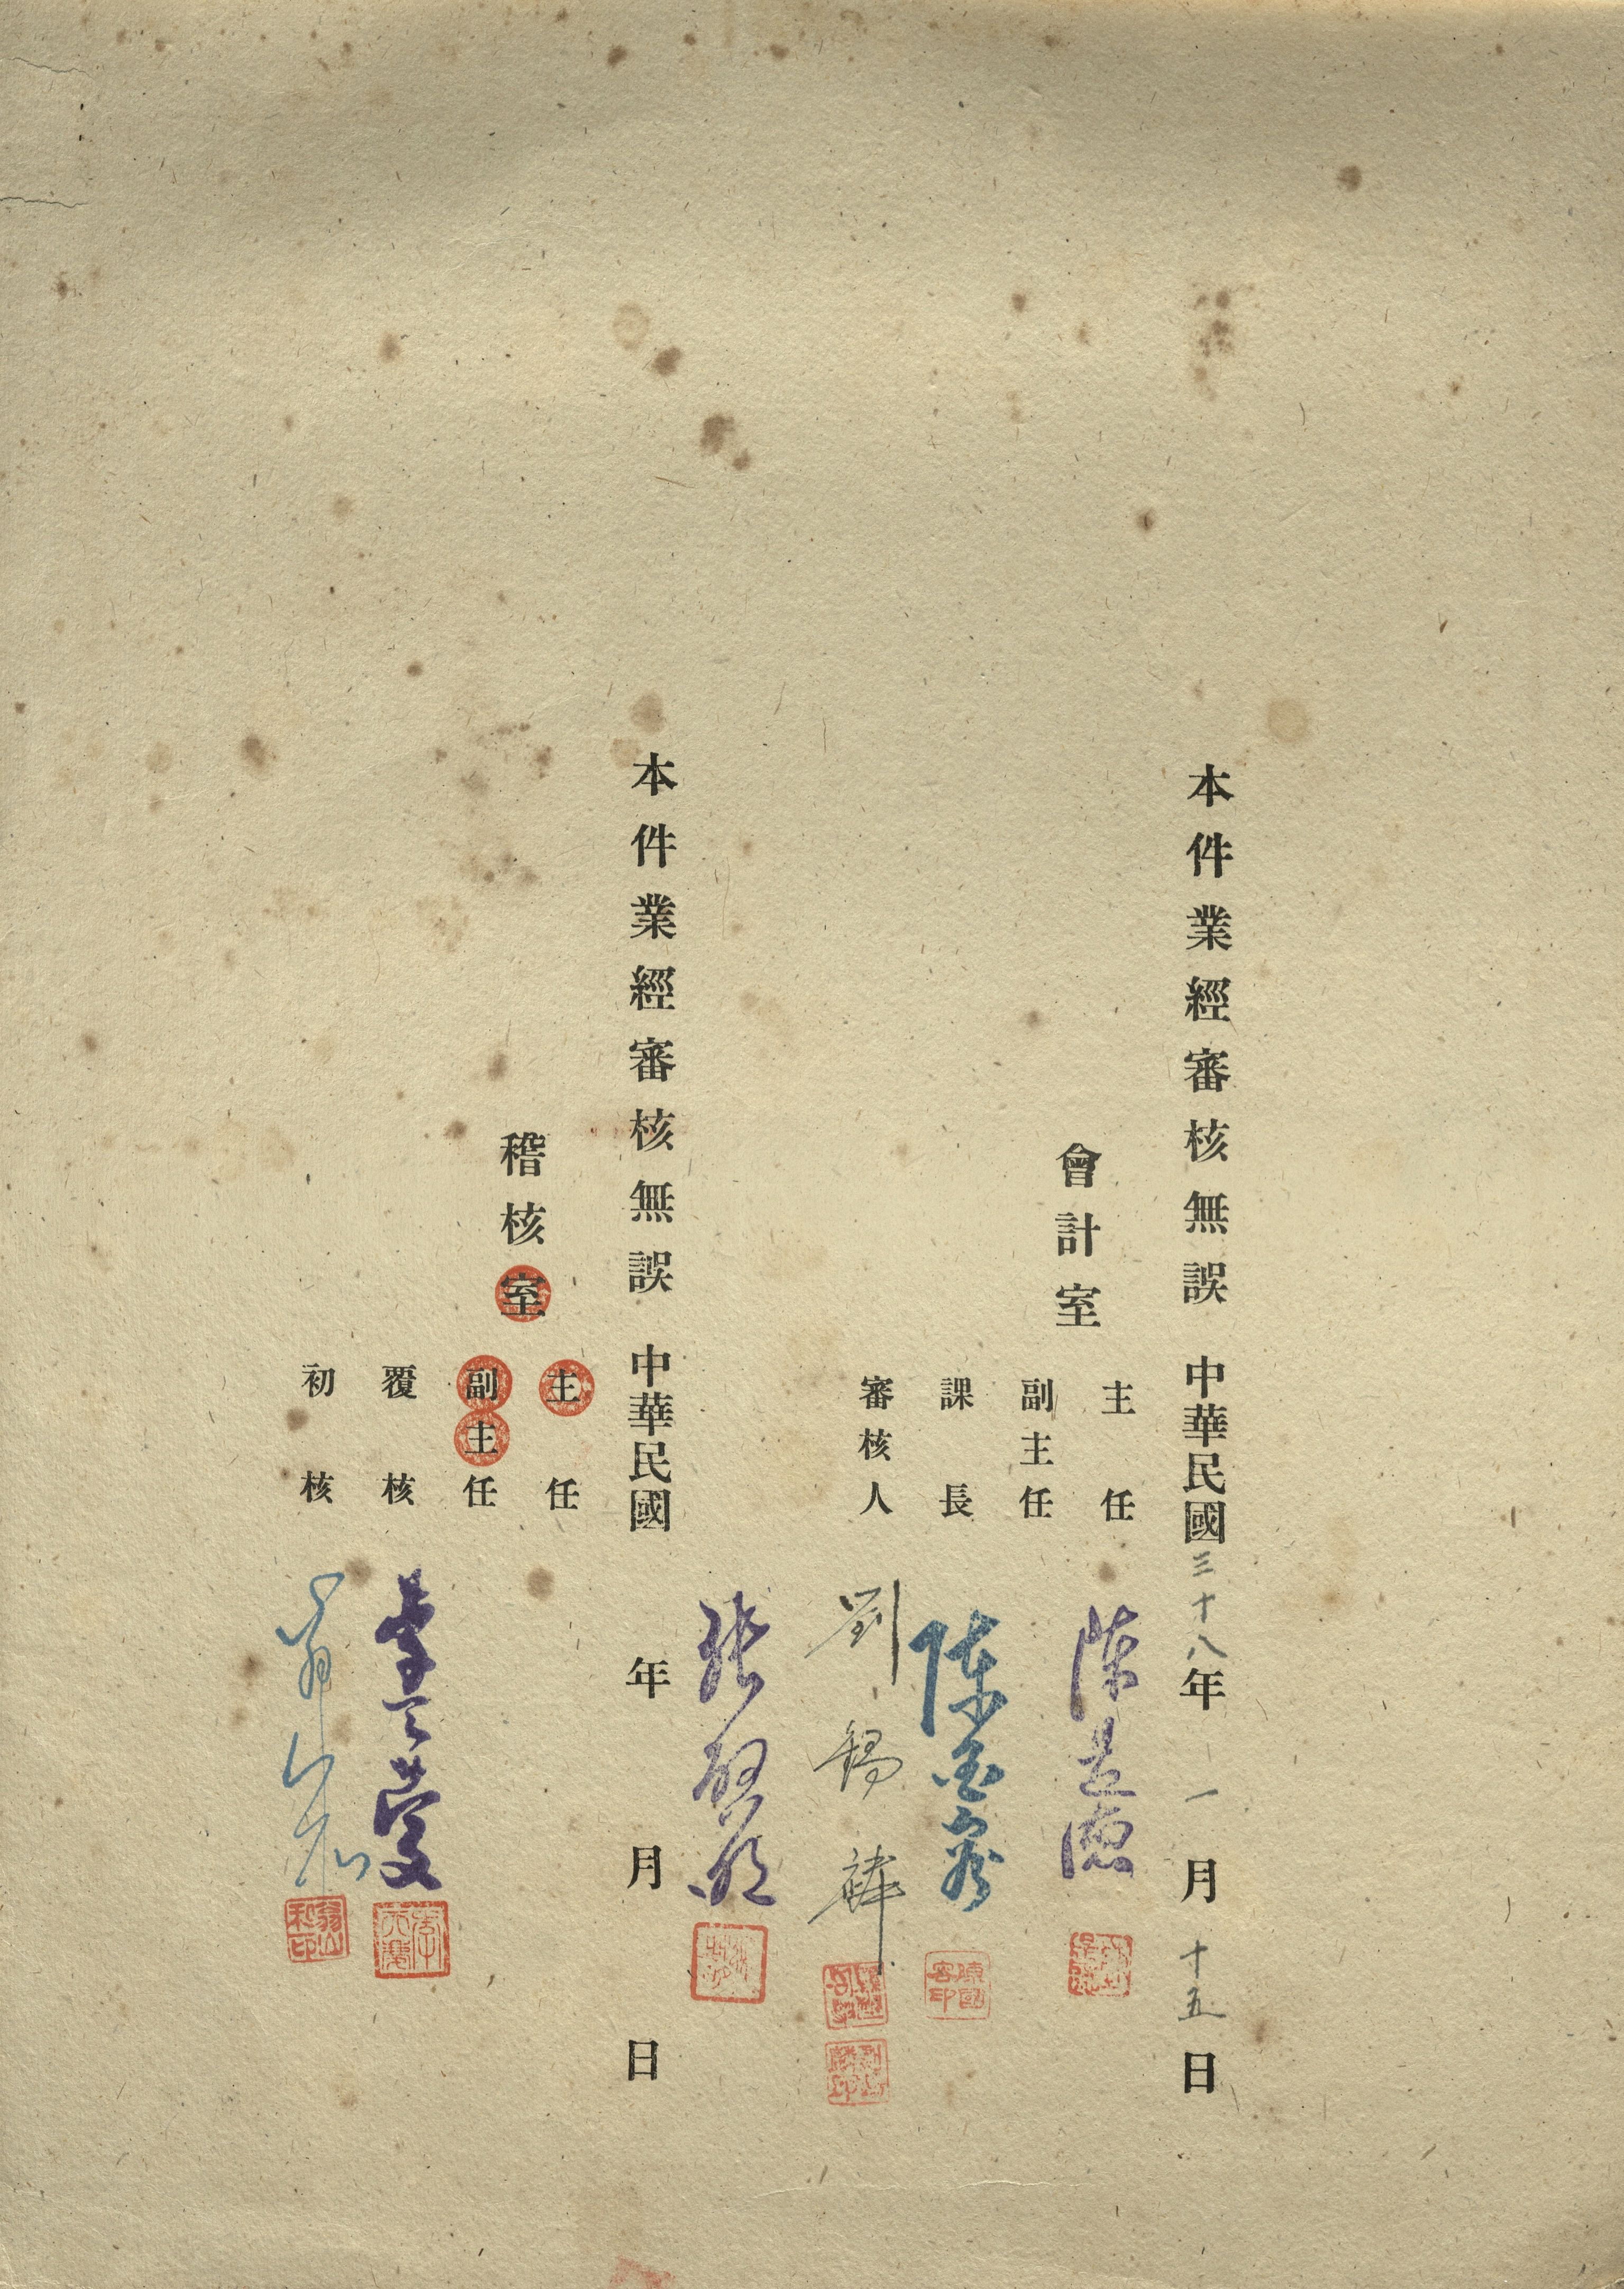 本件業經審核無誤 中華民國三十八年一月十五日
會計室
主任 陳
副主任
課長 陳
審核人 劉錫
本件業經審核無誤 中華民國 年 月 日
稽核室
主任 張
副主任
覆核 李
初核 翁